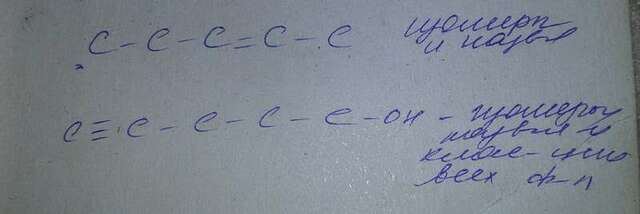 C - C - C = C - C изомеры
и назв-я
C ≡ C - C - C - C - OH - изомеры
назв-я и
клас-цию
всех ф-л